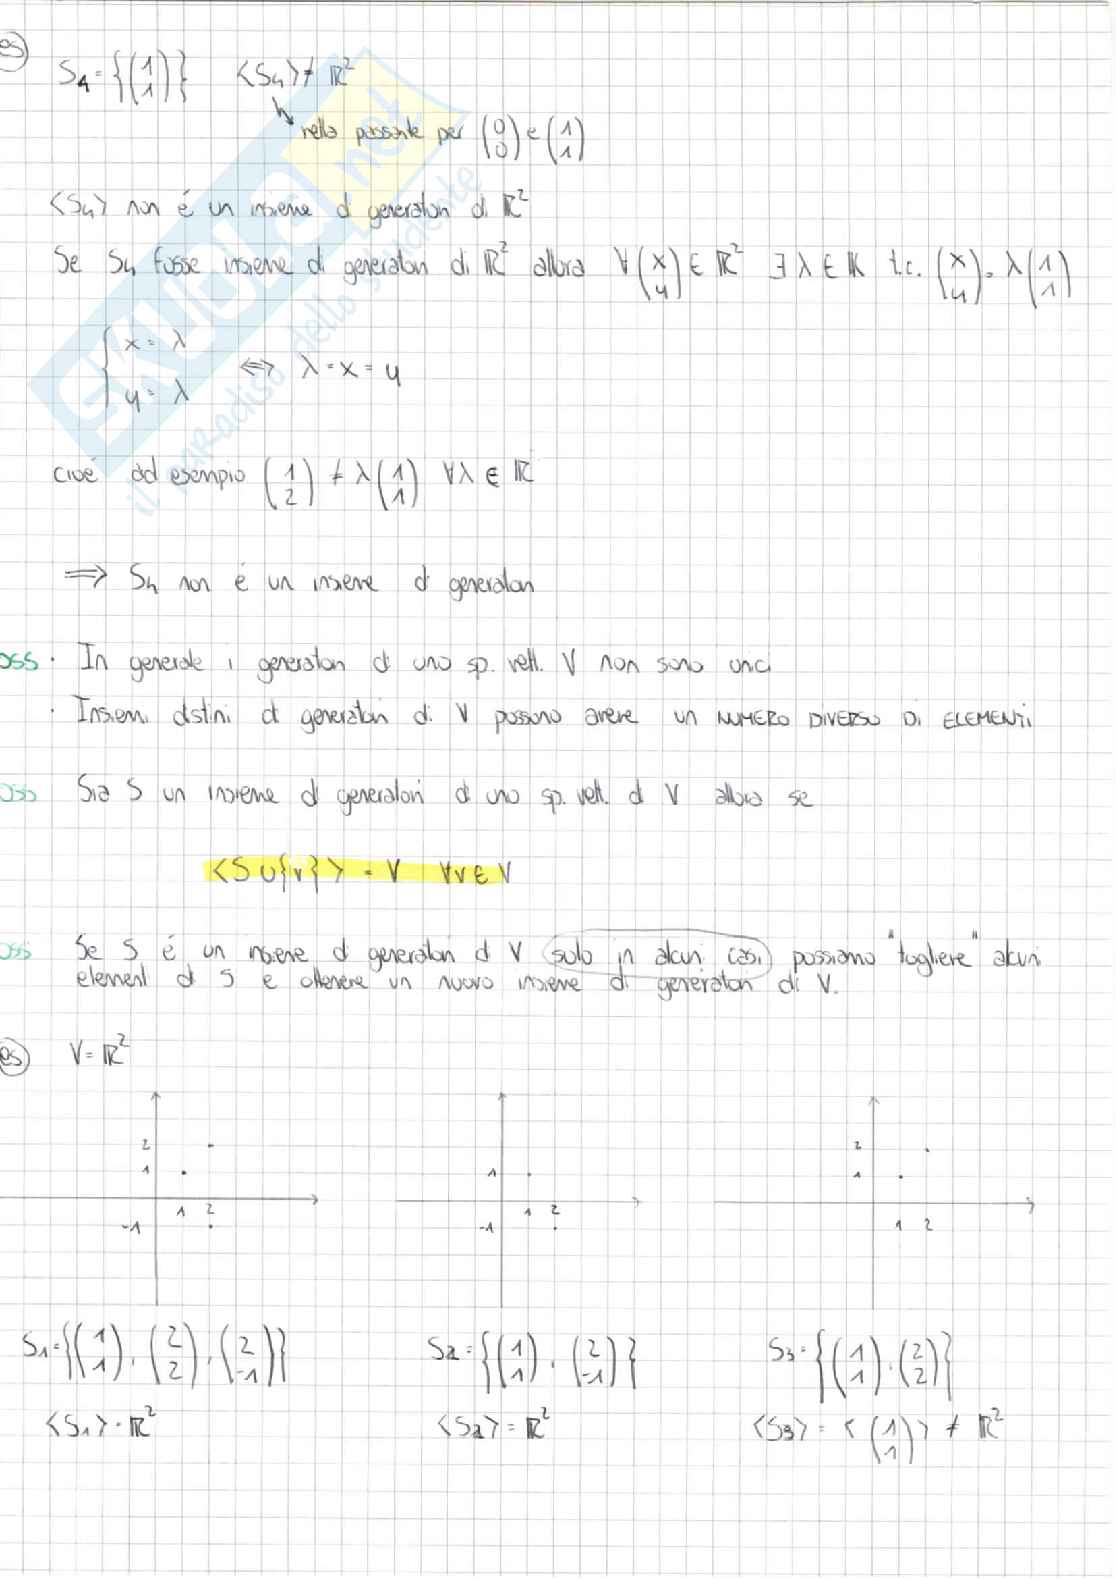 es
S₄ = {(1 1)} <S₄> ≠ ℝ²
retta passante per (0 0) e (1 1)
<S₄> non è un insieme di generatori di ℝ²
Se S₄ fosse insieme di generatori di ℝ² allora ∀(x y) ∈ ℝ² ∃ λ ∈ K t.c. (x y) = λ(1 1)
{ x = λ
y = λ ⟺ λ = x = y
cioè ad esempio (1 2) ≠ λ(1 1) ∀λ ∈ ℝ
⟹ S₄ non è un insieme di generatori
OSS · In generale i generatori di uno sp. vett. V non sono unici
· Insiemi distini di generatori di V possono avere un NUMERO DIVERSO DI ELEMENTI
OSS Sia S un insieme di generatori di uno sp. vett. di V allora se
<S ∪ {v}> = V ∀v ∈ V
OSS Se S è un insieme di generatori di V solo in alcuni casi possiamo "togliere" alcuni
elementi di S e ottenere un nuovo insieme di generatori di V.
es V = ℝ²
2 1 -1 1 2
1 -1 1 2
2 1 1 2
S₁ = {(1 1), (2 2), (2 -1)} S₂ = {(1 1), (2 -1)} S₃ = {(1 1), (2 2)}
<S₁> = ℝ² <S₂> = ℝ² <S₃> = <(1 1)> ≠ ℝ²
SKUOLA.net
il paradiso dello studente